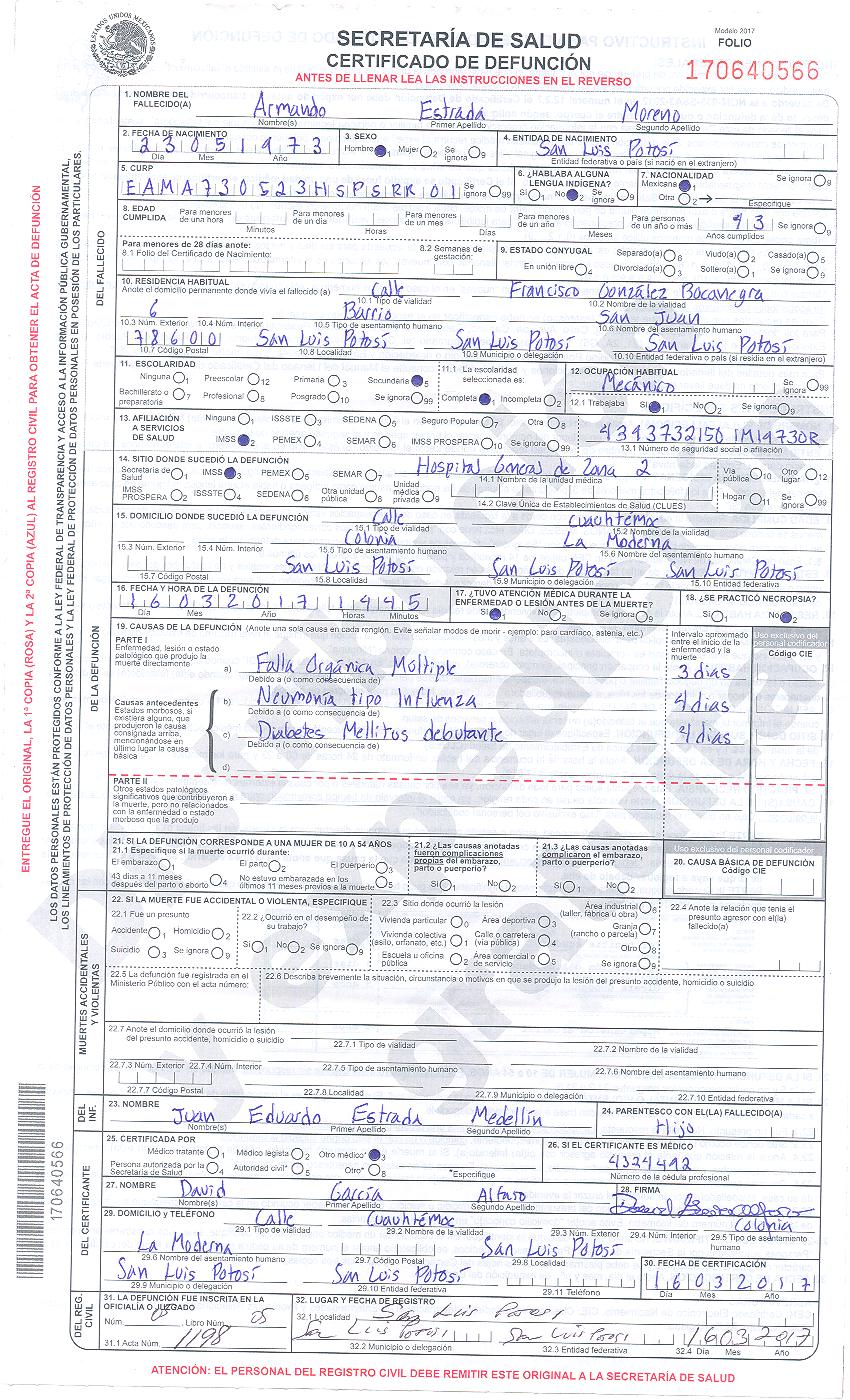 ESTADOS UNIDOS MEXICANOS
SECRETARÍA DE SALUD
CERTIFICADO DE DEFUNCIÓN
ANTES DE LLENAR LEA LAS INSTRUCCIONES EN EL REVERSO
Modelo 2017
FOLIO
170640566
ENTREGUE EL ORIGINAL, LA 1ª COPIA (ROSA) Y LA 2ª COPIA (AZUL) AL REGISTRO CIVIL PARA OBTENER EL ACTA DE DEFUNCIÓN
LOS DATOS PERSONALES ESTÁN PROTEGIDOS CONFORME A LA LEY FEDERAL DE TRANSPARENCIA Y ACCESO A LA INFORMACIÓN PÚBLICA GUBERNAMENTAL,
LOS LINEAMIENTOS DE PROTECCIÓN DE DATOS PERSONALES Y LA LEY FEDERAL DE PROTECCIÓN DE DATOS PERSONALES EN POSESIÓN DE LOS PARTICULARES.
DEL FALLECIDO
1. NOMBRE DEL FALLECIDO(A) Armando Estrada Moreno
Nombre(s) Primer Apellido Segundo Apellido
2. FECHA DE NACIMIENTO 23051973
Día Mes Año
3. SEXO
Hombre 1 Mujer 2 Se ignora 9
4. ENTIDAD DE NACIMIENTO
San Luis Potosí
Entidad federativa o país (si nació en el extranjero)
5. CURP
EAMA730523HSPSRR01 Se ignora 99
6. ¿HABLABA ALGUNA LENGUA INDÍGENA?
Sí 1 No 2 Se ignora 9
7. NACIONALIDAD
Mexicana 1 Se ignora 9
Otra 2 Especifique
8. EDAD CUMPLIDA Para menores de una hora Minutos Para menores de un día Horas Para menores de un mes Días Para menores de un año Meses Para personas de un año o más 43 Años cumplidos Se ignora 9
Para menores de 28 días anote:
8.1 Folio del Certificado de Nacimiento:
8.2 Semanas de gestación:
9. ESTADO CONYUGAL
Separado(a) 6 Viudo(a) 2 Casado(a) 5
En unión libre 4 Divorciado(a) 3 Soltero(a) 1 Se ignora 9
10. RESIDENCIA HABITUAL
Anote el domicilio permanente donde vivía el fallecido (a)
Calle Francisco González Bocanegra
10.1 Tipo de vialidad 10.2 Nombre de la vialidad
6 Barrio San Juan
10.3 Núm. Exterior 10.4 Núm. Interior 10.5 Tipo de asentamiento humano 10.6 Nombre del asentamiento humano
San Luis Potosí San Luis Potosí San Luis Potosí
10.7 Código Postal 10.8 Localidad 10.9 Municipio o delegación 10.10 Entidad federativa o país (si residía en el extranjero)
11. ESCOLARIDAD
Ninguna 1 Preescolar 12 Primaria 3 Secundaria 5
Bachillerato o preparatoria 7 Profesional 8 Posgrado 10 Se ignora 99
11.1 La escolaridad seleccionada es:
Completa 1 Incompleta 2
12. OCUPACIÓN HABITUAL
Mecánico Se ignora 99
12.1 Trabajaba Sí 1 No 2 Se ignora 9
13. AFILIACIÓN A SERVICIOS DE SALUD
Ninguna 1 ISSSTE 3 SEDENA 5 Seguro Popular 7 Otra 8
IMSS 2 PEMEX 4 SEMAR 6 IMSS PROSPERA 10 Se ignora 99
13.1 Número de seguridad social o afiliación
DE LA DEFUNCIÓN
14. SITIO DONDE SUCEDIÓ LA DEFUNCIÓN
Secretaría de Salud 1 IMSS 3 PEMEX 5 SEMAR 7
IMSS PROSPERA 2 ISSSTE 4 SEDENA 6 Otra unidad pública 8 Unidad médica privada 9
Hospital General de Zona 2
14.1 Nombre de la unidad médica
14.2 Clave Única de Establecimientos de Salud (CLUES)
Vía pública 10 Otro lugar 12
Hogar 11 Se ignora 99
15. DOMICILIO DONDE SUCEDIÓ LA DEFUNCIÓN
Calle Cuauhtémoc
15.1 Tipo de vialidad 15.2 Nombre de la vialidad
Colonia La Moderna
15.3 Núm. Exterior 15.4 Núm. Interior 15.5 Tipo de asentamiento humano 15.6 Nombre del asentamiento humano
San Luis Potosí San Luis Potosí San Luis Potosí
15.7 Código Postal 15.8 Localidad 15.9 Municipio o delegación 15.10 Entidad federativa
16. FECHA Y HORA DE LA DEFUNCIÓN
16032017 1445
Día Mes Año Horas Minutos
17. ¿TUVO ATENCIÓN MÉDICA DURANTE LA ENFERMEDAD O LESIÓN ANTES DE LA MUERTE?
Sí 1 No 2 Se ignora 9
18. ¿SE PRACTICÓ NECROPSIA?
Sí 1 No 2
19. CAUSAS DE LA DEFUNCIÓN (Anote una sola causa en cada renglón. Evite señalar modos de morir - ejemplo: paro cardíaco, astenia, etc.)
Intervalo aproximado entre el inicio de la enfermedad y la muerte
Uso exclusivo del personal codificador
Código CIE
PARTE I
Enfermedad, lesión o estado patológico que produjo la muerte directamente
a) Falla Orgánica Múltiple 3 días
Debido a (o como consecuencia de)
Causas antecedentes
Estados morbosos, si existiera alguno, que produjeron la causa consignada arriba, mencionándose en último lugar la causa básica
b) Neumonía tipo Influenza 4 días
Debido a (o como consecuencia de)
c) Diabetes Mellitus debutante 4 días
Debido a (o como consecuencia de)
d)
PARTE II
Otros estados patológicos significativos que contribuyeron a la muerte, pero no relacionados con la enfermedad o estado morboso que la produjo
21. SI LA DEFUNCIÓN CORRESPONDE A UNA MUJER DE 10 A 54 AÑOS
21.1 Especifique si la muerte ocurrió durante:
El embarazo 1 El parto 2 El puerperio 3
43 días a 11 meses después del parto o aborto 4 No estuvo embarazada en los últimos 11 meses previos a la muerte 5
21.2 ¿Las causas anotadas fueron complicaciones propias del embarazo, parto o puerperio?
Sí 1 No 2
21.3 ¿Las causas anotadas complicaron el embarazo, parto o puerperio?
Sí 1 No 2
Uso exclusivo del personal codificador
20. CAUSA BÁSICA DE DEFUNCIÓN
Código CIE
MUERTES ACCIDENTALES Y VIOLENTAS
22. SI LA MUERTE FUE ACCIDENTAL O VIOLENTA, ESPECIFIQUE
22.1 Fue un presunto
Accidente 1 Homicidio 2
Suicidio 3 Se ignora 9
22.2 ¿Ocurrió en el desempeño de su trabajo?
Sí 1 No 2 Se ignora 9
22.3 Sitio donde ocurrió la lesión
Vivienda particular 0 Área deportiva 3 Área industrial (taller, fábrica u obra) 6
Vivienda colectiva (asilo, orfanato, etc.) 1 Calle o carretera (vía pública) 4 Granja (rancho o parcela) 7
Escuela u oficina pública 2 Área comercial o de servicio 5 Otro 8
Se ignora 9
22.4 Anote la relación que tenía el presunto agresor con el(la) fallecido(a)
22.5 La defunción fue registrada en el Ministerio Público con el acta número:
22.6 Describa brevemente la situación, circunstancia o motivos en que se produjo la lesión del presunto accidente, homicidio o suicidio
22.7 Anote el domicilio donde ocurrió la lesión del presunto accidente, homicidio o suicidio
22.7.1 Tipo de vialidad 22.7.2 Nombre de la vialidad
22.7.3 Núm. Exterior 22.7.4 Núm. Interior 22.7.5 Tipo de asentamiento humano 22.7.6 Nombre del asentamiento humano
22.7.7 Código Postal 22.7.8 Localidad 22.7.9 Municipio o delegación 22.7.10 Entidad federativa
DEL INF.
23. NOMBRE Juan Eduardo Estrada Medellín
Nombre(s) Primer Apellido Segundo Apellido
24. PARENTESCO CON EL(LA) FALLECIDO(A)
Hijo
DEL CERTIFICANTE
25. CERTIFICADA POR
Médico tratante 1 Médico legista 2 Otro médico* 3
Persona autorizada por la Secretaría de Salud 4 Autoridad civil* 5 Otro* 8 *Especifique
26. SI EL CERTIFICANTE ES MÉDICO
4324492
Número de la cédula profesional
27. NOMBRE David García Alfaro
Nombre(s) Primer Apellido Segundo Apellido
28. FIRMA
29. DOMICILIO y TELÉFONO Calle Cuauhtémoc Colonia
29.1 Tipo de vialidad 29.2 Nombre de la vialidad 29.3 Núm. Exterior 29.4 Núm. Interior 29.5 Tipo de asentamiento humano
La Moderna San Luis Potosí
29.6 Nombre del asentamiento humano 29.7 Código Postal 29.8 Localidad
San Luis Potosí San Luis Potosí
29.9 Municipio o delegación 29.10 Entidad federativa 29.11 Teléfono
30. FECHA DE CERTIFICACIÓN
16032017
Día Mes Año
DEL REG. CIVIL
31. LA DEFUNCIÓN FUE INSCRITA EN LA OFICIALÍA O JUZGADO
Núm. 05 Libro Núm. 05
31.1 Acta Núm. 1198
32. LUGAR Y FECHA DE REGISTRO
32.1 Localidad San Luis Potosí
San Luis Potosí San Luis Potosí 16032017
32.2 Municipio o delegación 32.3 Entidad federativa 32.4 Día Mes Año
170640566
ATENCIÓN: EL PERSONAL DEL REGISTRO CIVIL DEBE REMITIR ESTE ORIGINAL A LA SECRETARÍA DE SALUD